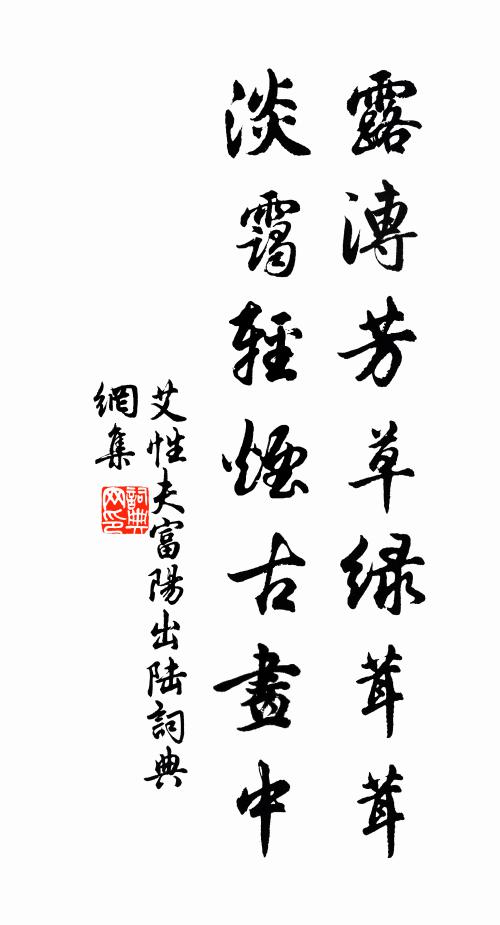 露漙芳草緑茸茸
淡靄輕煙古畫中
艾性夫富陽出陆詞典
網集
詞典网印